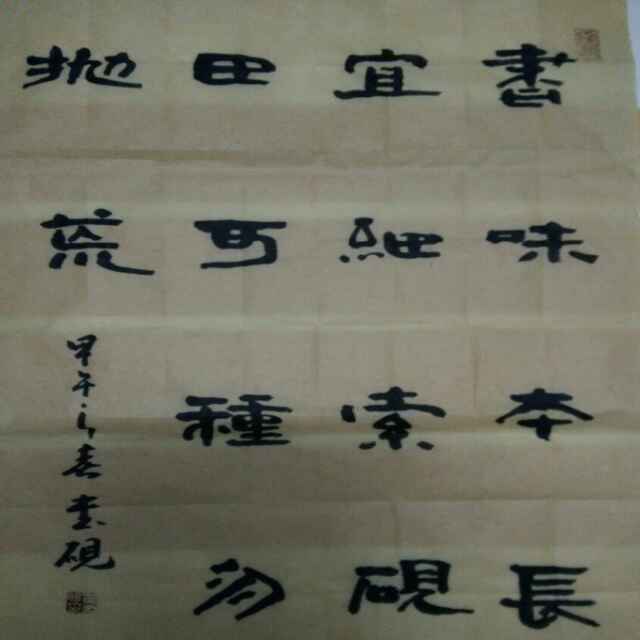 書味本長
宜細索硯
田可種勿
抛荒
甲午之春
硯